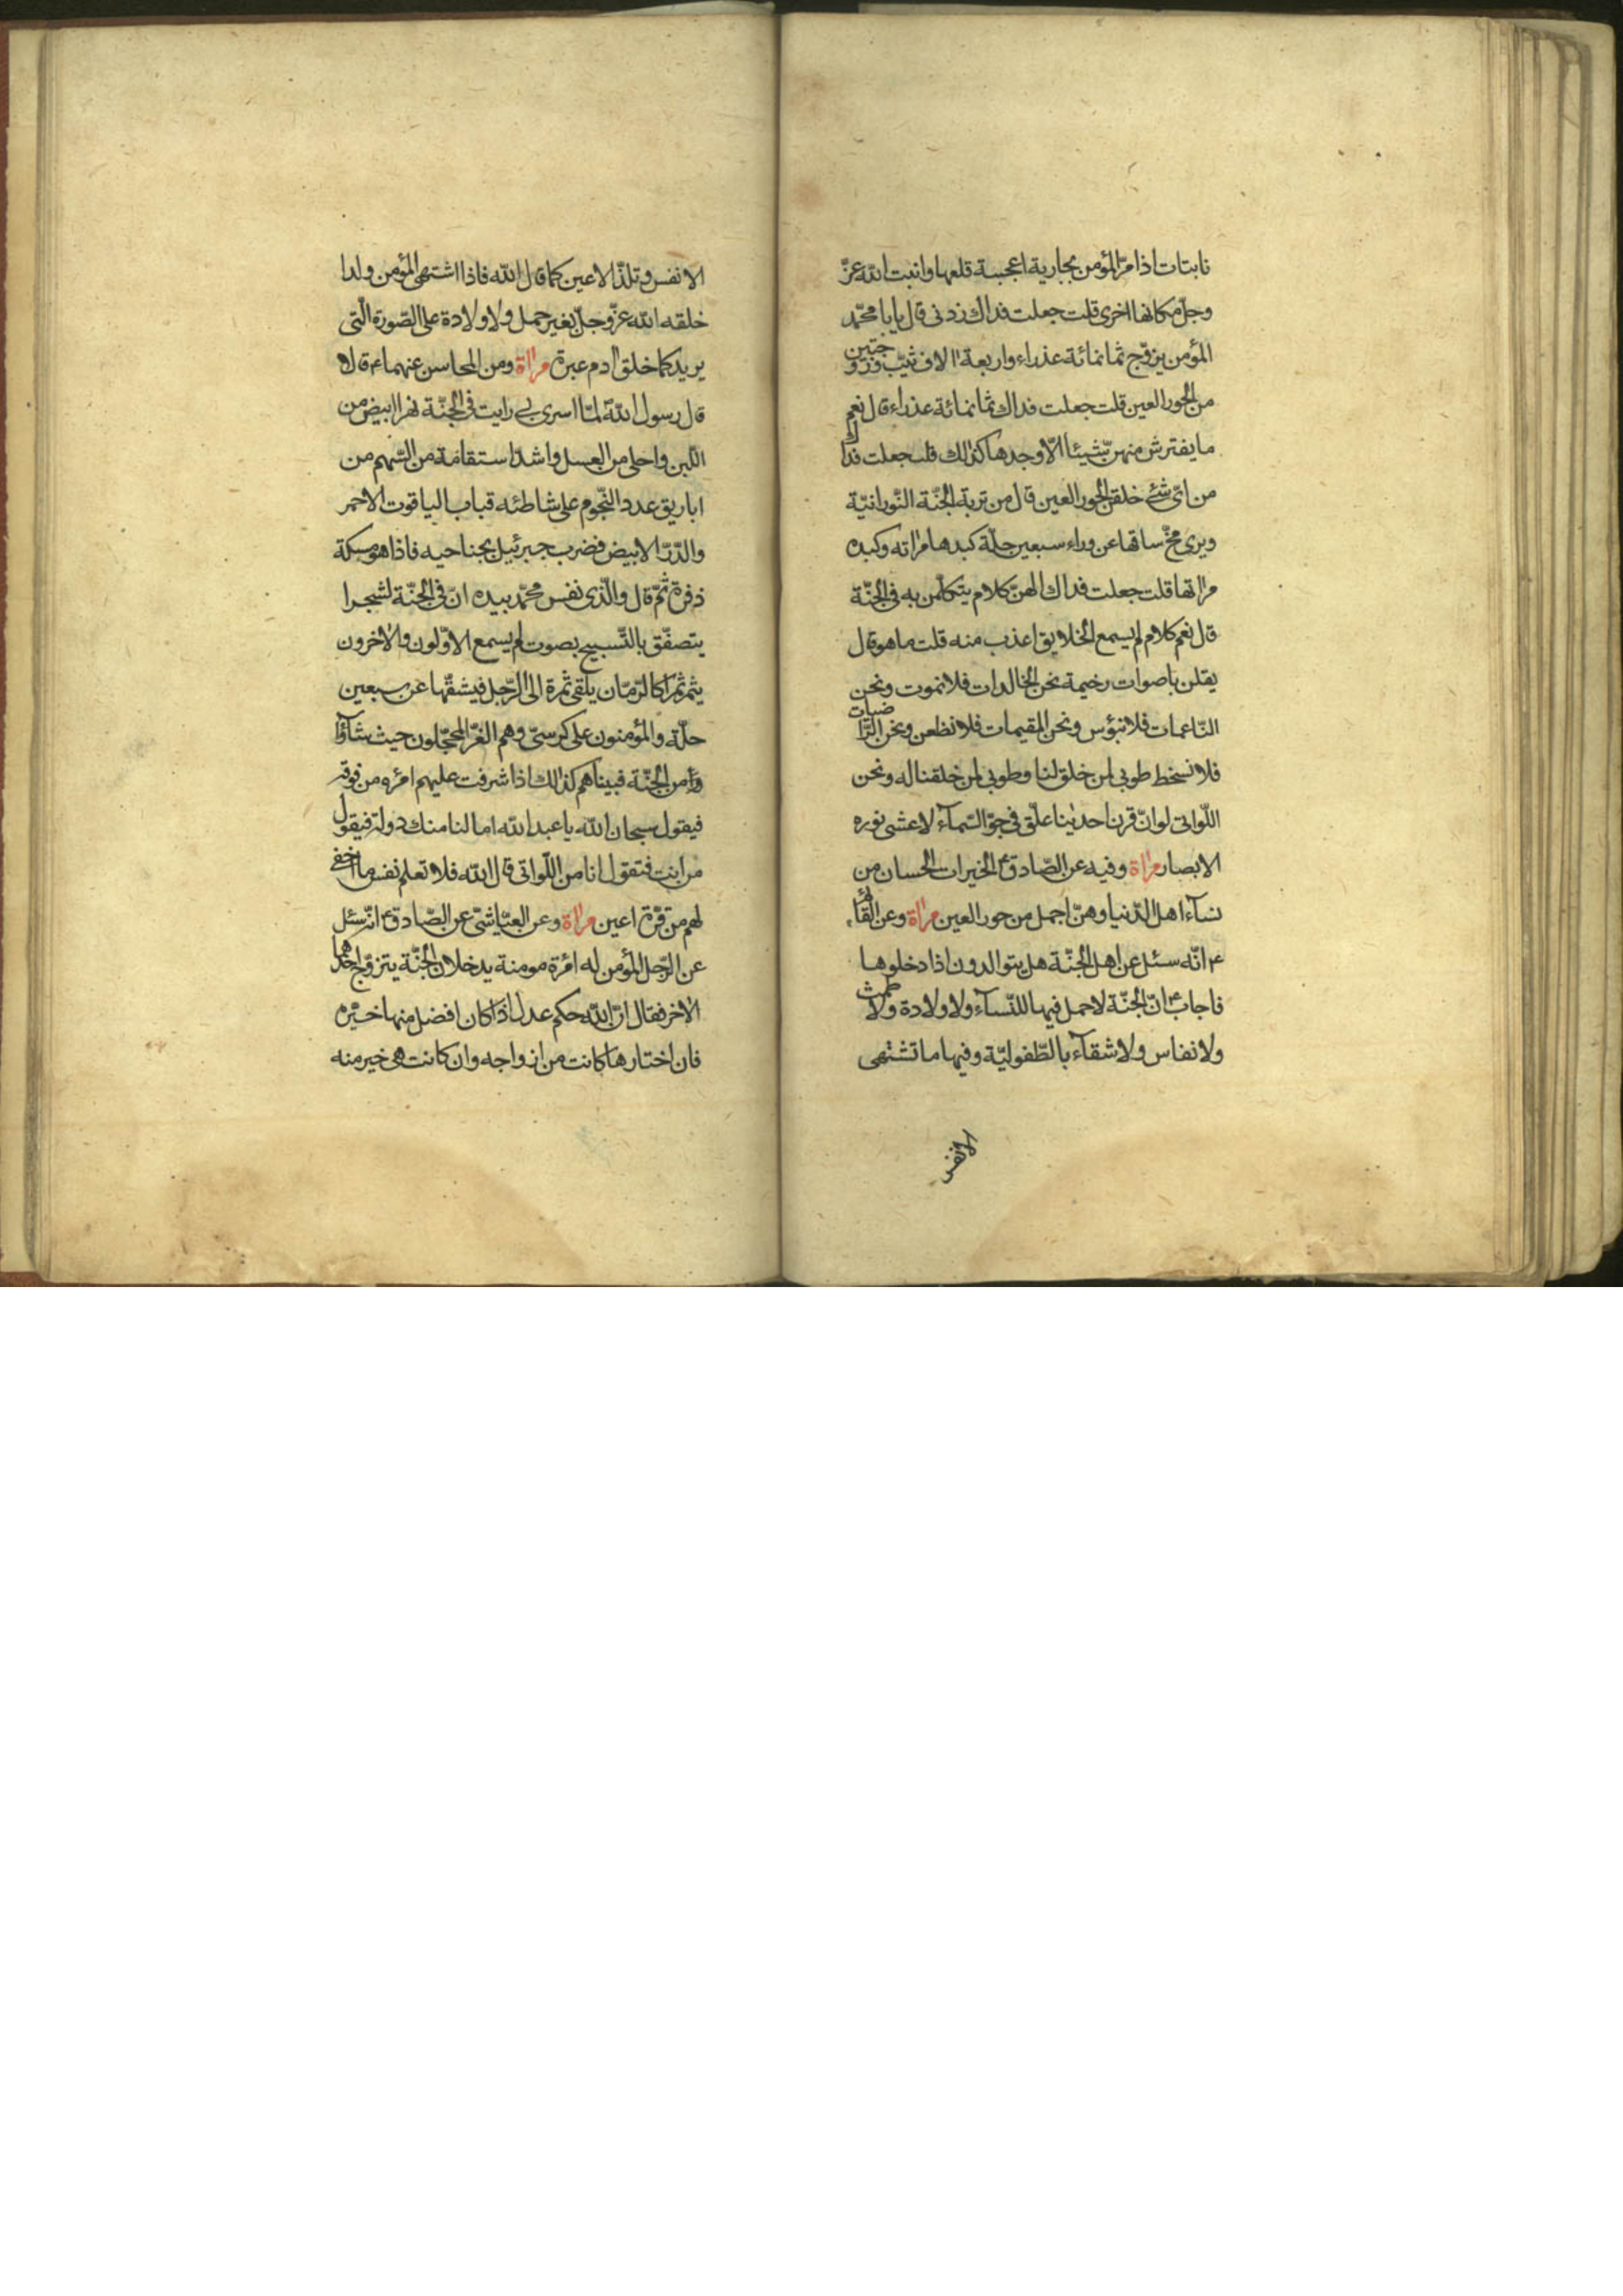 نابتات اذا مرّ المؤمن بجارية اعجبته قلعها وانبت الله عزّ
وجلّ مكانها اخرى قلت جعلت فداك زدنى قال يا با محمّد
المؤمن يزوّج ثمانمائة عذراء واربعة الاف ثيّب وزوجتين
من الحور العين قلت جعلت فداك ثمانمائة عذراء قال نعم
ما يفترش منهن شيئا الّا وجدها كذلك قلت جعلت فداك
من اىّ شئ خلقن الحور العين قال من تربة الجنّة النّورانيّة
ويرى مخّ ساقها عن وراء سبعين حلّة كبدها مراته وكبده
مراتها قلت جعلت فداك الهنّ كلام يتكلّمن به فى الجنّة
قال نعم كلام لم يسمع الخلايق اعذب منه قلت ما هو قال
يقلن باصوات رخيمة نحن الخالدات فلا نموت ونحن
النّاعمات فلا نبؤس ونحن المقيمات فلا نظعن ونحن الرّاضيات
فلا نسخط طوبى لمن خلق لنا وطوبى لمن خلقنا له ونحن
اللّواتى لو انّ قرن احدينا علّق فى جوّ السّمآء لاغشى نوره
الابصار مراة وفيه عن الصّادق ع الخيرات الحسان من
نسآء اهل الدّنيا وهنّ اجمل من حور العين مراة وعن القائم
ع انّه سئل عن اهل الجنّة هل يتوالدون اذا دخلوها
فاجاب ع انّ الجنّة لا حمل فيها للنّسآء ولا ولادة ولا طمث
ولا نفاس ولا شقآء بالطّفوليّة وفيها ما تشتهى
الانفس
الانفس وتلذّ الاعين كما قال الله فاذا اشتهى المؤمن ولدا
خلقه الله عزّ وجلّ بغير حمل ولا ولادة على الصّورة الّتى
يريد كما خلق ادم عبرة مراة ومن المحاسن عنهما ع قالا
قال رسول الله لمّا اسرى بى رايت فى الجنّة نهرا ابيض من
اللّبن واحلى من العسل واشدّ استقامة من السّهم من
اباريق عدد النّجوم على شاطئه قباب الياقوت الاحمر
والدّرّ الابيض فضرب جبرئيل بجناحيه فاذا هو مسكة
ذفرة ثمّ قال والّذى نفس محمّد بيده انّ فى الجنّة لشجرا
يتصفّق بالتّسبيح بصوت لم يسمع الاوّلون والاخرون
يثمر ثمرا كالرّمّان يلقى ثمرة الى الرّجل فيشقّها عن سبعين
حلّة والمؤمنون على كرسىّ وهم الغرّ المحجّلون حيث شآؤا
من الجنّة فبيناهم كذلك اذا شرفت عليهم امرءه من فوقه
فيقول سبحان الله يا عبد الله اما لنا منك دولة فيقول
من انت فتقول انا من اللّواتى قال الله فلا تعلم نفس ما اخفى
لهم من قرّة اعين مراة وعن العيّاشى عن الصّادق ع انّه سئل
عن الرّجل المؤمن له امرة مومنة يدخلان الجنّة يتزوّج احدهما
الاخر فقال انّ الله حكم عدل اذا كان افضل منها خيّره
فان اختارها كانت من ازواجه وان كانت هى خير منه